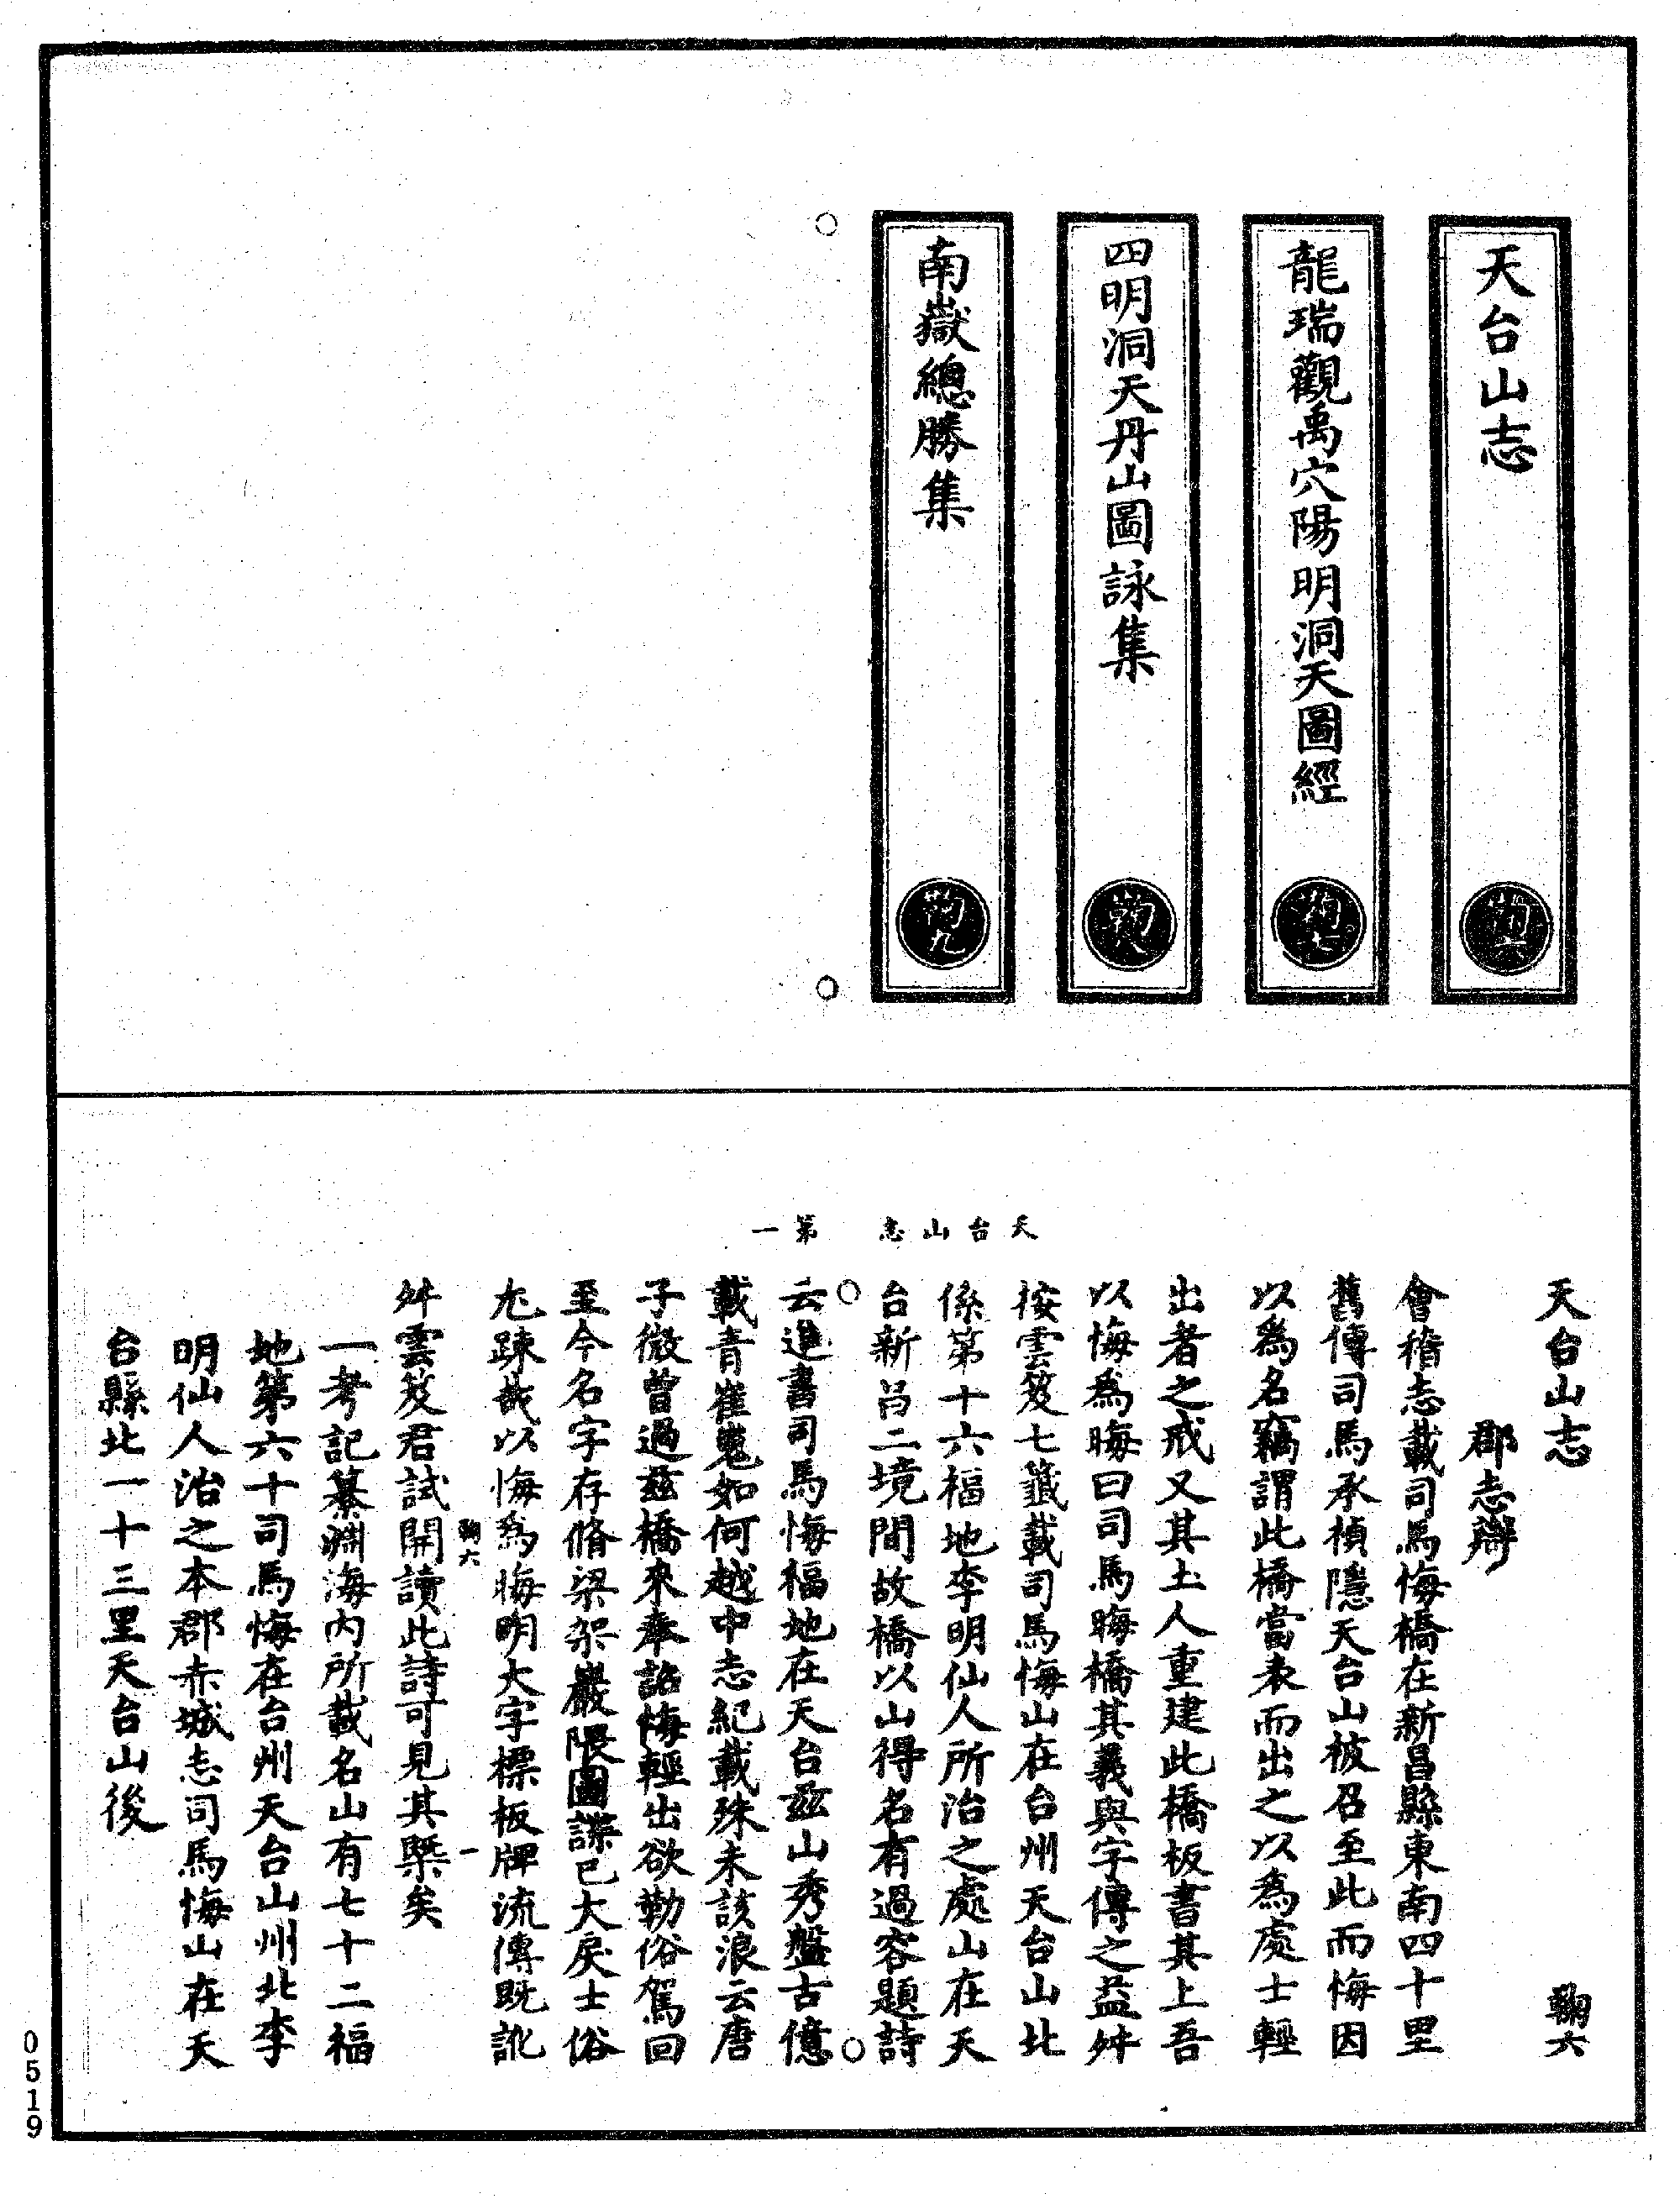 天台山志
龍瑞觀禹穴陽明洞天圖經
四明洞天丹山圖詠集
南嶽總勝集
鞠六
鞠七
鞠八
鞠九
天台山志 第一
天台山志 鞠六
郡志辯
會稽志載司馬悔橋在新昌縣東南四十里
舊傳司馬承禎隱天台山被召至此而悔因
以為名竊謂此橋當表而出之以為處士輕
出者之戒又其土人重建此橋板書其上吾
以悔為晦曰司馬晦橋其義與字傳之益舛
按雲笈七籤載司馬悔山在台州天台山北
係第十六福地李明仙人所治之處山在天
台新昌二境間故橋以山得名有過客題詩
云進書司馬悔福地在天台茲山秀盤古億
載青崔嵬如何越中志紀載殊未該浪云唐
子微曾過茲橋來奉詔悔輕出欲勒俗駕回
至今名字存脩梁架巖隈圖諜已大戾士俗
尤踈哉以悔為晦明大字標板牌流傳既訛
舛雲笈君試開讀此詩可見其槩矣
鞠六 一
一考記纂淵海內所載名山有七十二福
地第六十司馬悔在台州天台山州北李
明仙人治之本郡赤城志司馬悔山在天
台縣北一十三里天台山後
0519